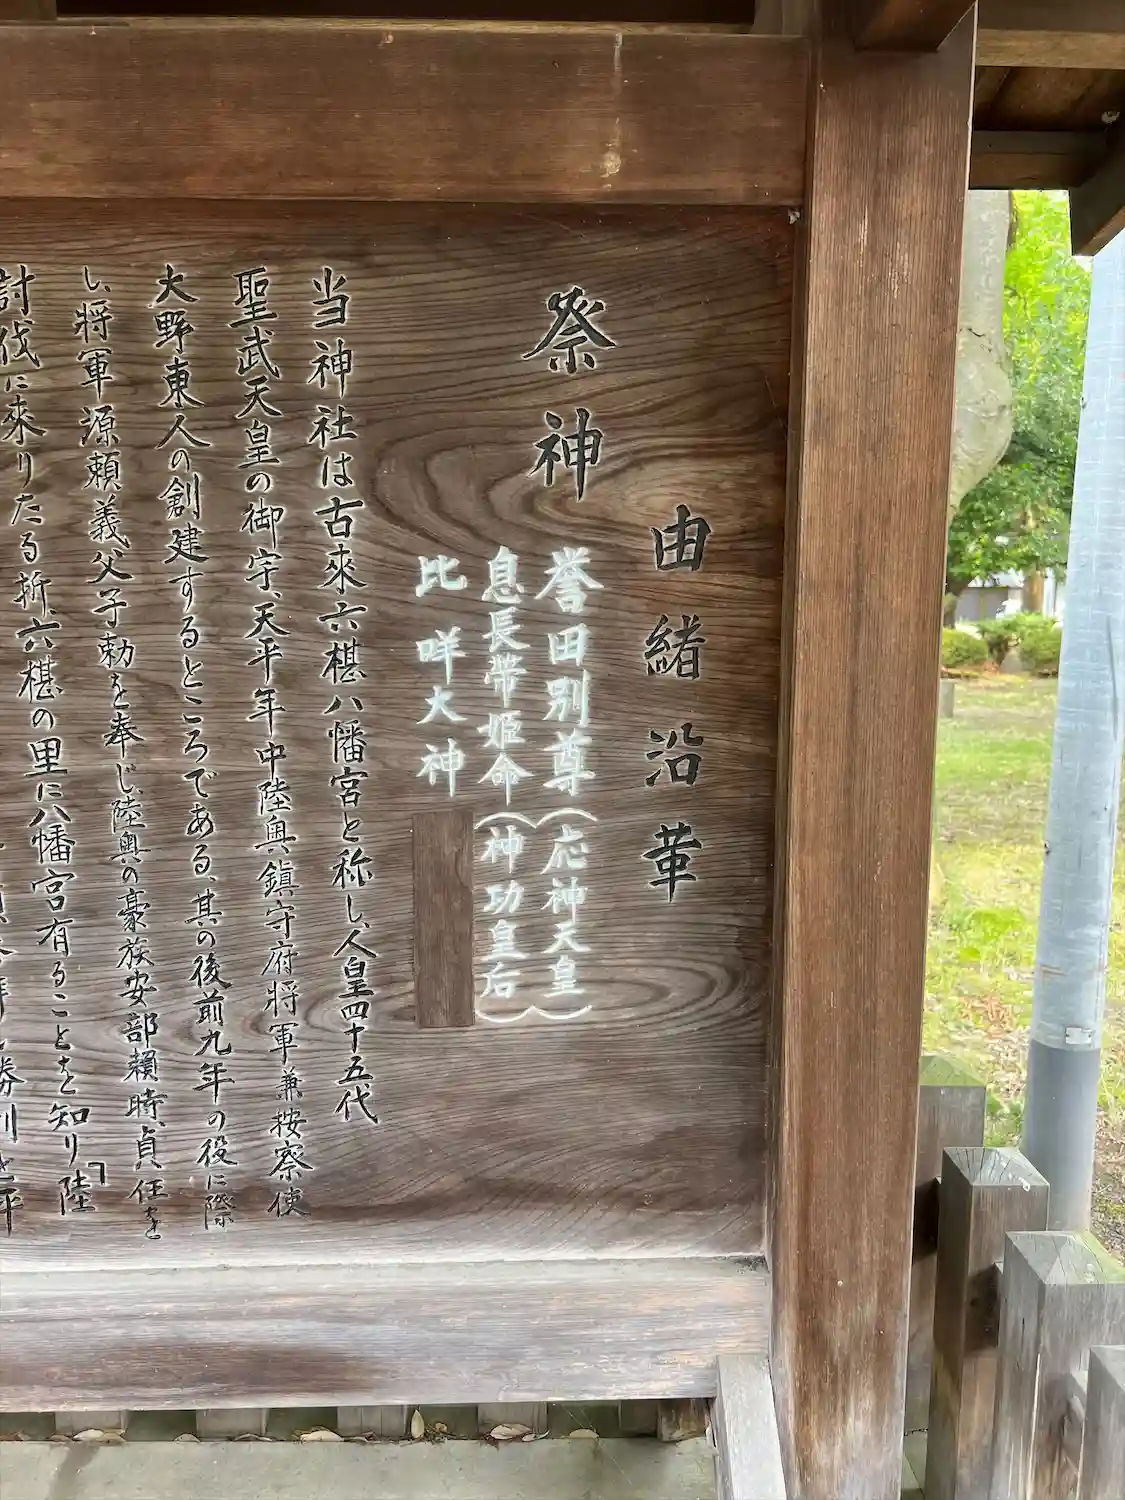 由緒沿革
祭神
誉田別尊(応神天皇)
息長帯姫命(神功皇后)
比咩大神
当神社は古來六椹八幡宮と称し、人皇四十五代
聖武天皇の御宇、天平年中陸奥鎮守府将軍兼按察使
大野東人の創建するところである、其の後前九年の役に際
し、将軍源頼義父子勅を奉じ、陸奥の豪族安部頼時、貞任を
討伐に來りたる折、六椹の里に八幡宮有ることを知り「陸